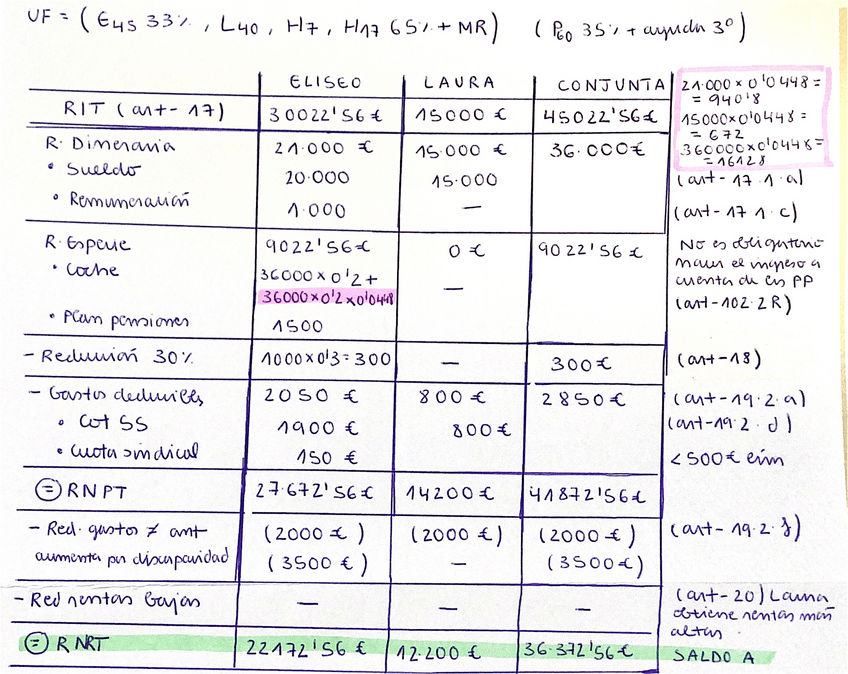 UF = (E45 33%, L40, H7, H17 65% + MR) (P60 35% + ayuda 3º)
ELISEO LAURA CONJUNTA
21.000 x 0'0448 =
= 940'8
15000x0'0448 =
= 672
360000x0'0448=
=16128
RIT (art-17) 30022'56€ 15000€ 45022'56€
R. Dineraria 21.000 € 15.000 € 36.000€
• Sueldo 20.000 15.000 (art-17.1.a)
• Remuneración 1.000 — (art-17 1.c)
R. Especie 9022'56€ 0€ 9022'56€ No es obligatorio
• Coche 36000x0'2+ — hacer el ingreso a
36000x0'2x0'0448 cuenta de las PP
• Plan pensiones 1500 (art-102.2R)
- Reducción 30% 1000x0'3=300 — 300€ (art-18)
- Gastos deducibles 2050 € 800 € 2850€ (art-19.2.a)
• Cot SS 1900€ 800€ (art-19.2.d)
• Cuota sindical 150 € <500€
= RNPT 27.672'56€ 14200 € 41872'56€
- Red. gastos ≠ ant (2000 €) (2000 €) (2000 €) (art-19.2.f)
aumenta por discapacidad (3500 €) — (3500€)
- Red rentas bajas — — — (art-20) Laura
obtiene rentas más
altas
= RNRT 22172'56€ 12.200 € 36.372'56€ SALDO A